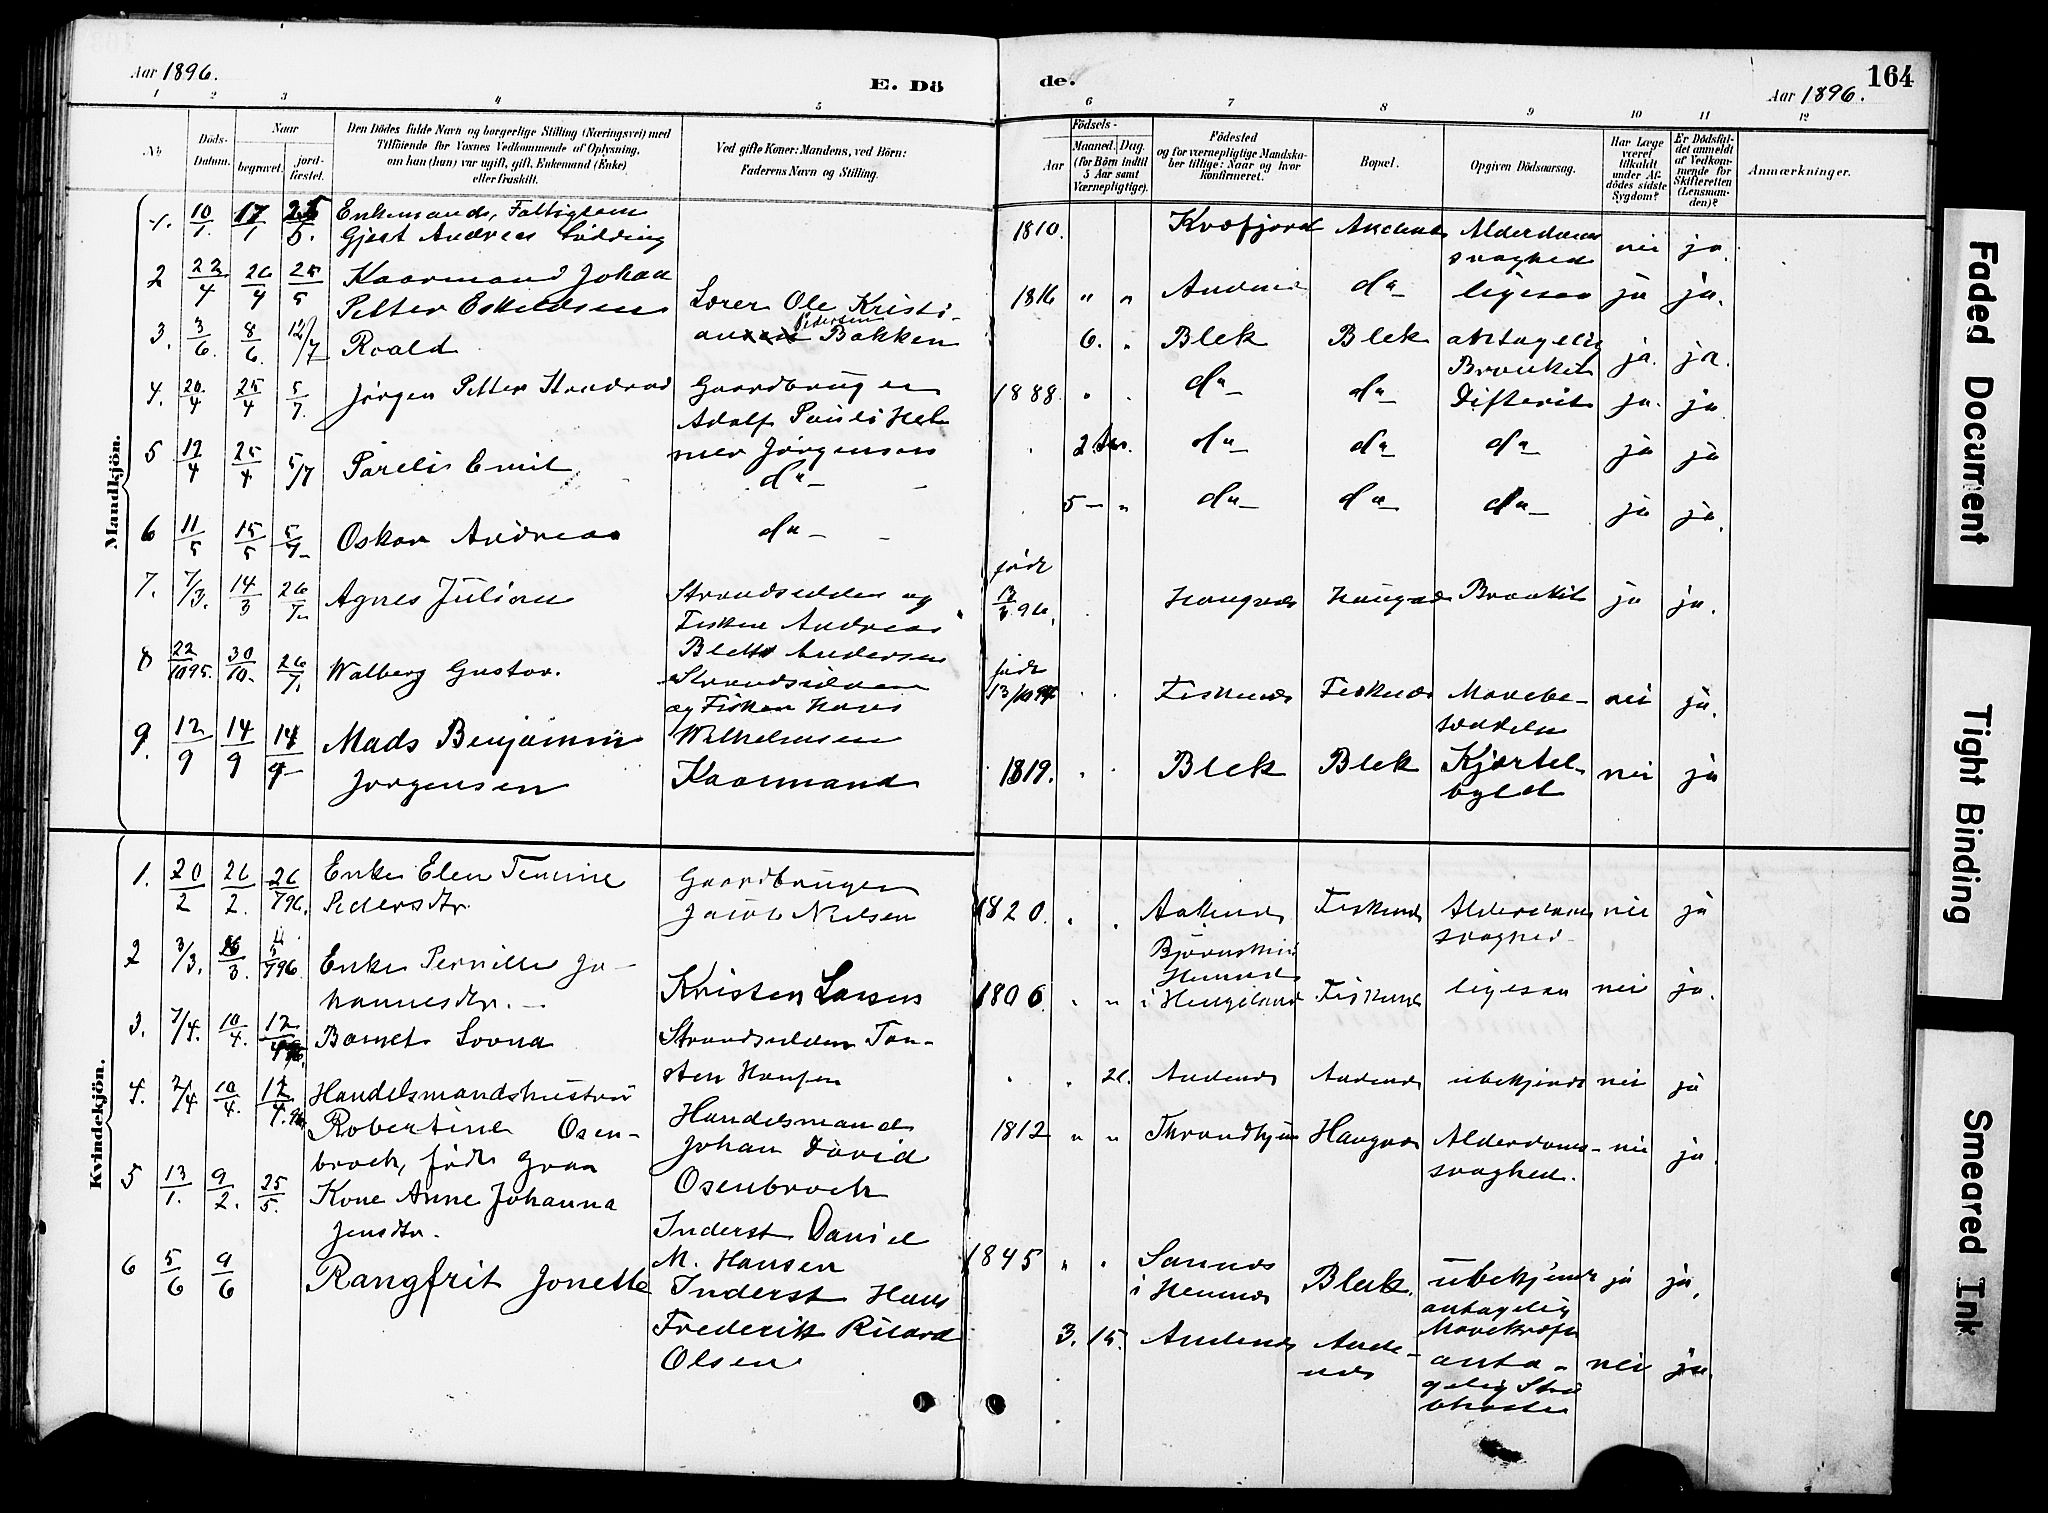 Aar 1896.
E. Dö
de.
Aar 1896.
164
1 2 3 4 5 6 7 8 9 10 11 12
No
Döds-
Datum.
Naar
begravet.
jord-
fæstet.
Den Dödes fulde Navn og borgerlige Stilling (Næringsvei) med
Tilföiende for Voxnes Vedkommende af Oplysning,
om han (hun) var ugift, gift, Enkemand (Enke)
eller fraskilt.
Ved gifte Koner: Mandens, ved Börn:
Faderens Navn og Stilling.
Födsels-
Aar
Maaned.
Dag.
(for Börn indtil
5 Aar samt
Værnepligtige).
Födested
og for værnepligtige Mandska-
ber tillige: Naar og hvor
konfirmeret.
Bopæl.
Opgiven Dödsaarsag.
Har Læge
været
tilkaldt
under Af-
dödes sidste
Sygdom?
Er Dödsfal-
det anmeldt
af Vedkom-
mende for
Skifteretten
(Lensman-
den)?
Anmærkninger.
Mandkjön.
1. 10/1. 17/1 25/5. Enkemand, Fattiglem
Gjest Andreas 1810. Kvæfjord Andenes Alderdoms
svaghed nei ja.
2 22/4 26/4 25/5 Kaarmand Johan
Petter Eskildsen 1816 " " Andenes do ligesaa ja ja.
3. 3/6. 8/6. 12/7 Roald Lærer Ole Kristi-
an Pedersen Bakken 6. " Blek Blek antagelig
Bronkit ja. ja.
4. 20/4 25/4 5/7. Jørgen Petter Gaardbruger
Adolf Paulé Hel
mer Jørgensen 1888. " . do do Difterit ja. ja
5 19/4 25/4 5/7 Parelis Emil do 2 do do do ja ja
6 11/5 15/5 5/7 Oskar Andreas do 5 - " do do do ja ja.
7. 7/3. 14/3 26/7 Agnes Julian Strandsidder og
Fisker Andreas
Andersen født
96. Haugnes Haugnes Bronkit ja ja.
8 22/10 95. 30/10 26/7. Walberg Gustav. Strandsidder
og Fisker Hans
Wilhelmsen født
13/10 Fiskenes Fiskenes Mavebe-
sværdelse nei ja.
9. 12/9 14/9 14/9 Mads Benjamin
Jørgensen Kaarmand 1819. Blek Blek Kjertel-
byld nei ja
Kvindekjön.
1. 20/2 26/2. 26/7 96. Enke Elen
Pedersdtr. Gaardbruger
Jacob Nielsen 1820. Fiskenes Alderdoms
svaghed nei ja
2 3/3. 16/3. 5/7 96 Enke Pernille Jo-
hannesdtr. Kristen Larsen 1806. " "
i Fiskenes ligesaa nei ja.
3. 7/4. 10/4. 12/4 96. Barnet Lovna Strandsidder Tor-
sten Hansen 26. Andenes Andenes ubekjendt nei ja
4. 2/4 10/4. 12/4. 96 Handelsmandshustru
Robertine Osen-
broch, født Graa Handelsmand
Johan David
Osenbroch 1812 " " Throndhjem Haugnes Alderdoms-
svaghed. nei ja.
5 13/1. 9/2. 25/5. Kone Anne Johanna
Jensdtr. Inderst Daniel
M. Hansen 1845 " "
i Hemnes Blek. ubekjendt
antagelig ja ja.
6 5/6 9/6 Rangfrit Jonette Inderst Hans
Frederik Rikard
Olsen 3. 15. Andenes Ande-
nes anta-
gelig nei ja.
Faded Document
Tight Binding
Smeared Ink